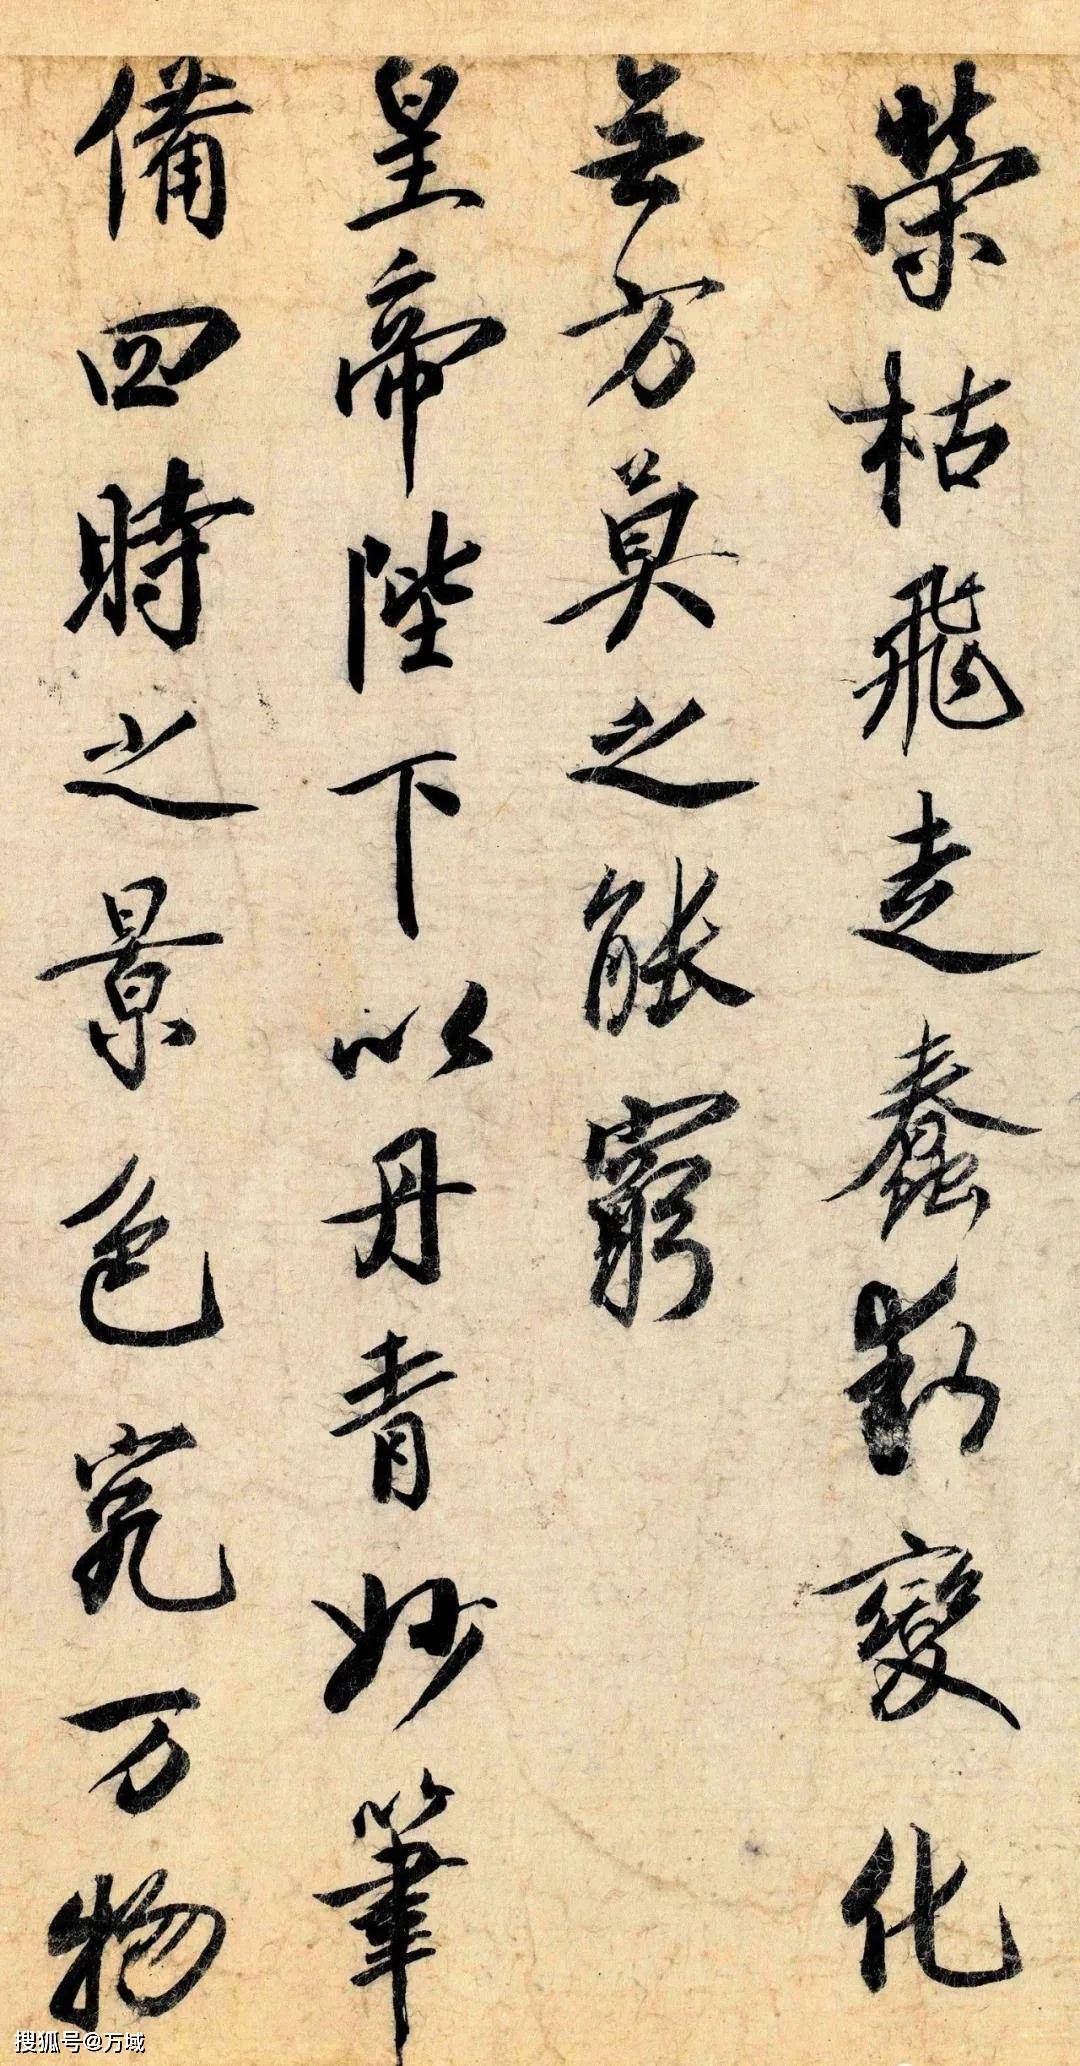 榮枯飛走蠢動變化
無方莫之能窮
皇帝陛下以丹青妙筆
備四時之景色究万物
搜狐号@万域